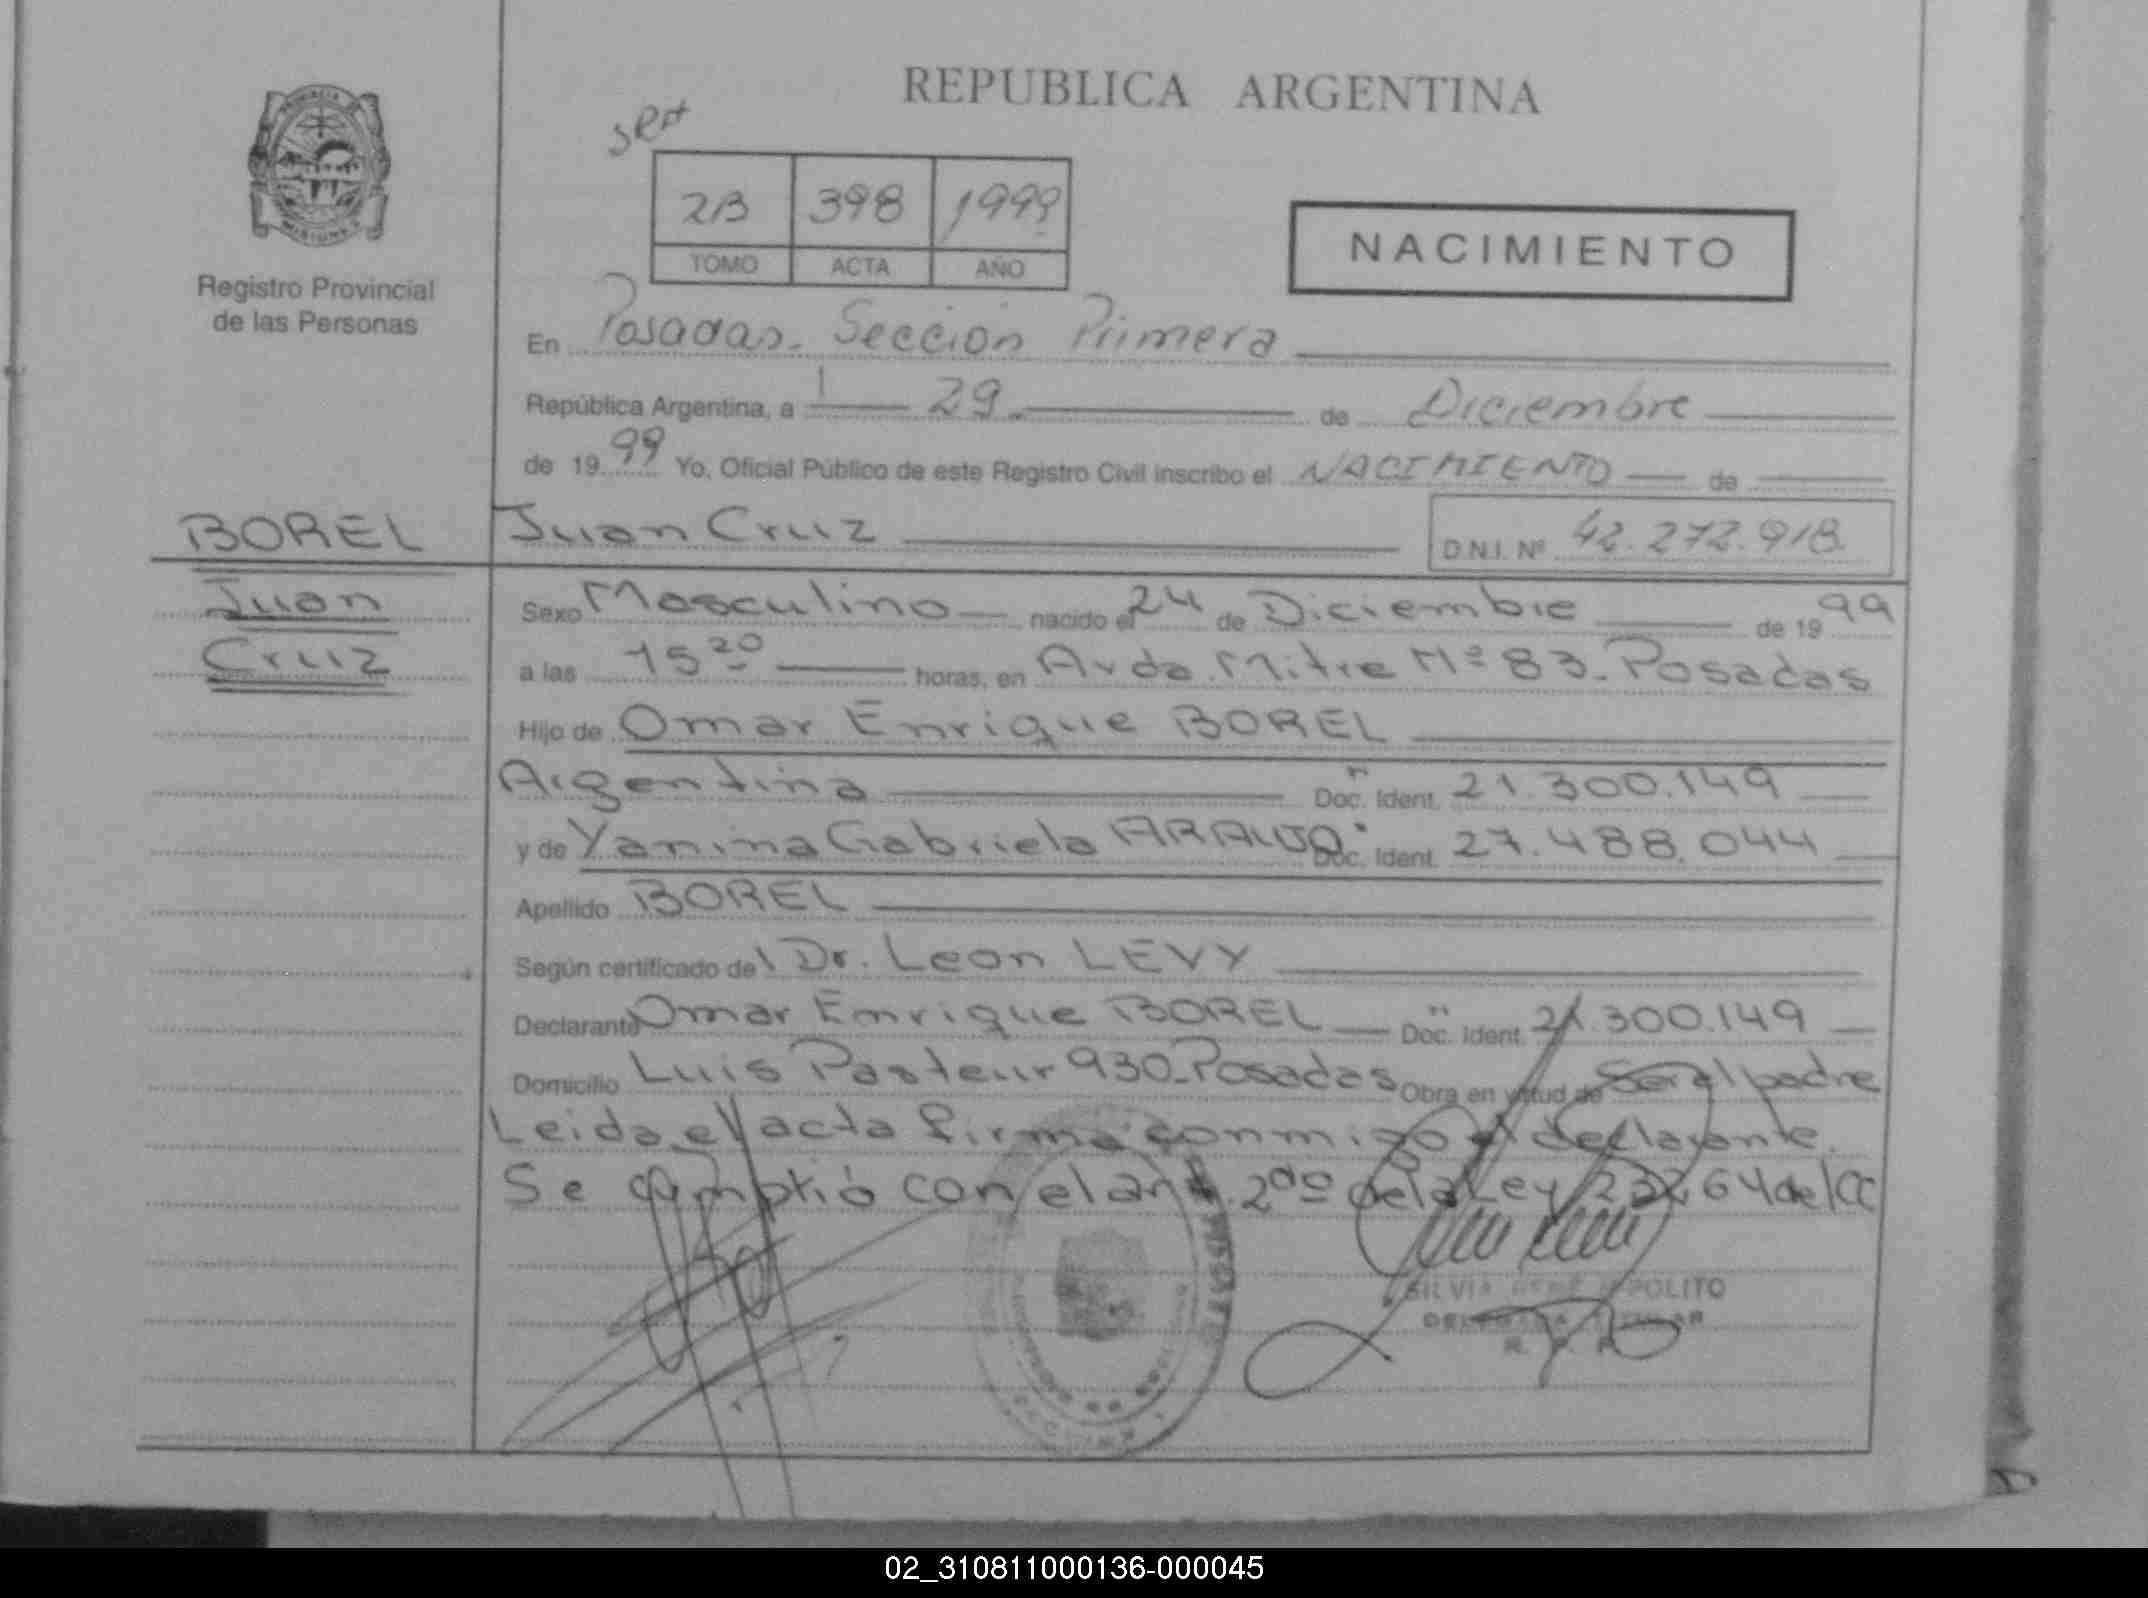 REPUBLICA ARGENTINA
PROVINCIA DE
MISIONES
Registro Provincial
de las Personas
sept
2B 398 1999
TOMO ACTA AÑO
NACIMIENTO
En Posadas. Sección Primera
República Argentina, a 29. de Diciembre
de 1999 Yo, Oficial Público de este Registro Civil inscribo el NACIMIENTO de
BOREL Juan Cruz D.N.I. Nº 42.272.918
Juan
Cruz
Sexo Masculino nacido el 24 de Diciembre de 1999
a las 15 20 horas, en Avda. Mitre Nº 83. Posadas
Hijo de Omar Enrique BOREL
Argentina Doc. Ident. 21.300.149
y de Yanina Gabriela ARAUJO Doc. Ident. 27.488.044
Apellido BOREL
Según certificado del Dr. Leon LEVY
Declarante Omar Enrique BOREL Doc. Ident. 21.300.149
Domicilio Luis Pasteur 930. Posadas Obra en virtud de Ser el padre
Leida el acta firma conmigo el declarante.
Se cumplió con el art. 2do de la Ley 23264 del CC
SILVIA IPPOLITO
02_310811000136-000045